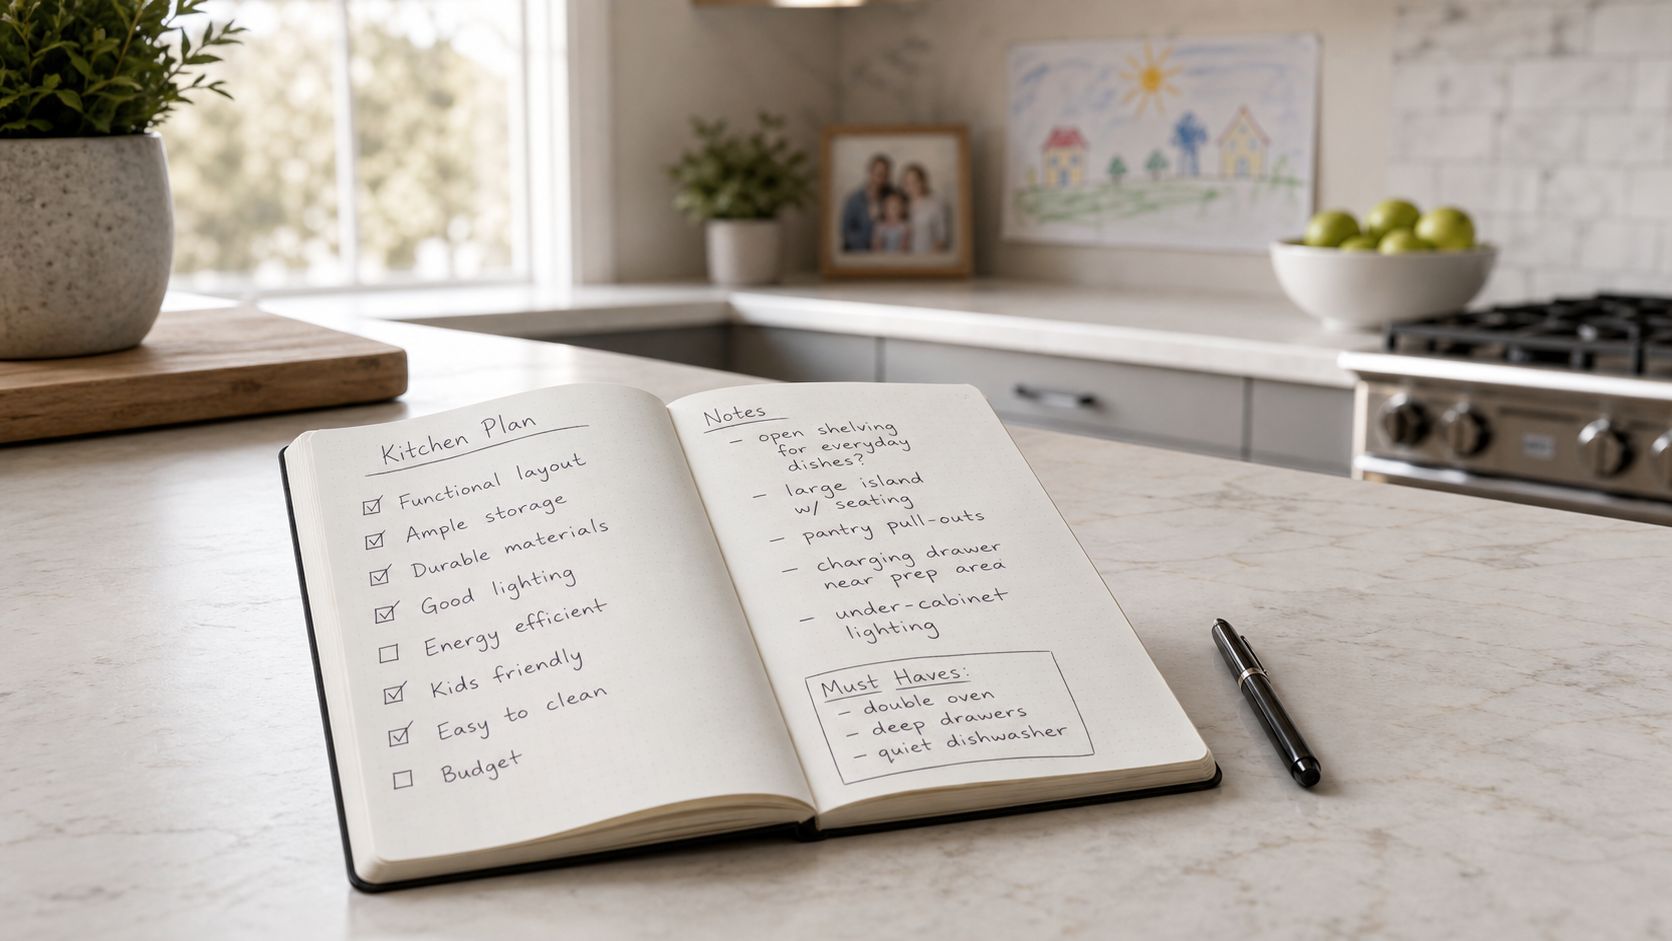 Kitchen Plan
☑ Functional layout
☑ Ample storage
☑ Durable materials
☑ Good lighting
☐ Energy efficient
☑ Kids friendly
☑ Easy to clean
☐ Budget
Notes
- open shelving
for everyday
dishes?
- large island
w/ seating
- pantry pull-outs
- charging drawer
near prep area
- under-cabinet
lighting
Must Haves:
- double oven
- deep drawers
- quiet dishwasher